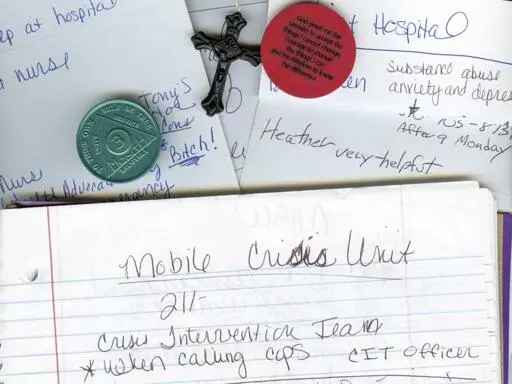 ep at hospital
a nurse
Tony's
Bitch!
nurse
t Hospital
Substance abuse
anxiety and depres
After 9 Monday
Heather very helpful
God grant me the
serenity to accept the
things I cannot change,
courage to change
the things I can
and the wisdom to know
the difference
TO THINE OWN SELF BE TRUE
UNITY
SERVICE
RECOVERY
3
MONTH
Mobile Crisis Unit
211-
Crisis Intervention Team
*when calling cops CIT Officer